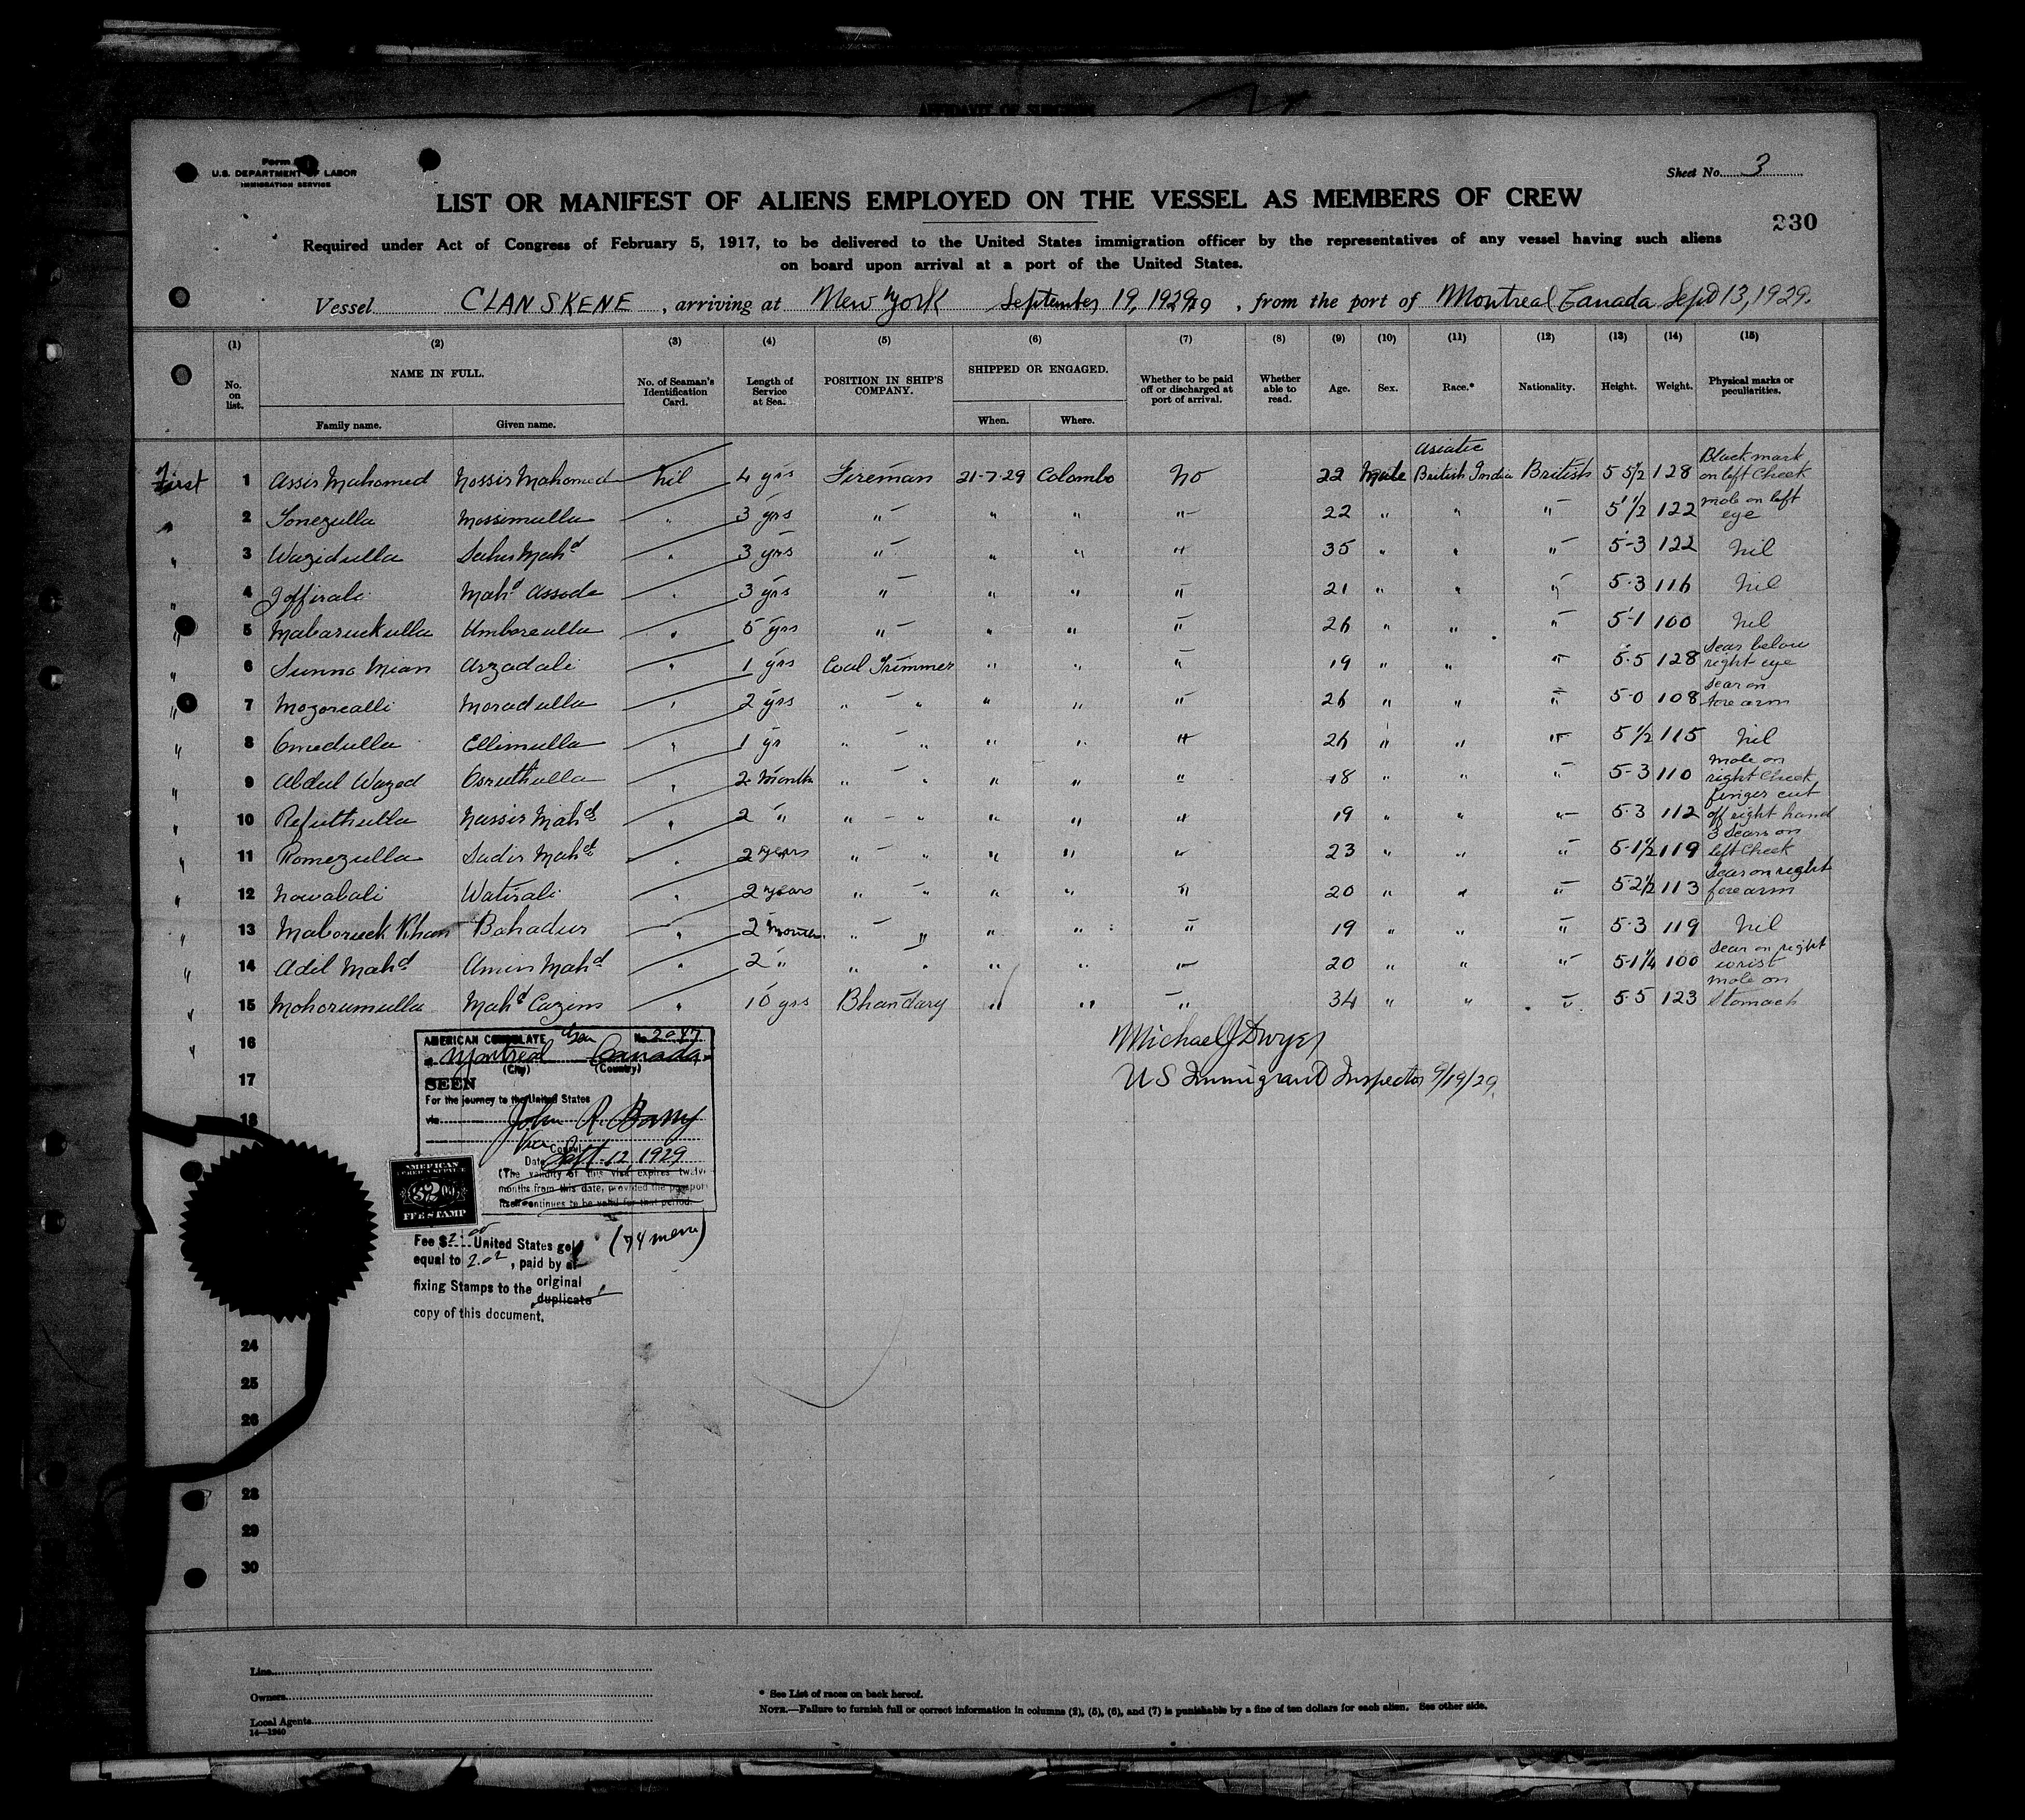 AFFIDAVIT OF SURGEON
U.S. DEPARTMENT OF LABOR
IMMIGRATION SERVICE
Sheet No. 3
LIST OR MANIFEST OF ALIENS EMPLOYED ON THE VESSEL AS MEMBERS OF CREW
230
Required under Act of Congress of February 5, 1917, to be delivered to the United States immigration officer by the representatives of any vessel having such aliens
on board upon arrival at a port of the United States.
Vessel CLAN SKENE, arriving at New York September 19, 1929, from the port of Montreal Canada Sept 13, 1929.
(1) (2) (3) (4) (5) (6) (7) (8) (9) (10) (11) (12) (13) (14) (15)
No. on list. NAME IN FULL. Family name. Given name. No. of Seaman's Identification Card. Length of Service at Sea. POSITION IN SHIP'S COMPANY. SHIPPED OR ENGAGED. When. Where. Whether to be paid off or discharged at port of arrival. Whether able to read. Age. Sex. Race.* Nationality. Height. Weight. Physical marks or peculiarities.
First 1 Assir Mahomed Nossir Mahomed Nil 4 yrs Fireman 21-7-29 Colombo No 22 Male Asiatic British India British 5 5½ 128 Black mark on left Cheek
" 2 Tonezulla Mossimulla " 3 yrs " " " " 22 " " " 5 ½ 122 mole on left eye
" 3 Wazidulla Mahd " 3 yrs " " " " 35 " " " 5-3 122 Nil
" 4 Joffirali Mahd Assode " 3 yrs " " " " 21 " " " 5-3 116 Nil
" 5 Mabaruckulla Umboreulla " 5 yrs " " " " 26 " " " 5-1 100 Nil
" 6 Sunno Mian Arzadali " 1 yrs Coal Trimmer " " " 19 " " " 5-5 128 Scar below right eye
" 7 Mozorealli Moradulla " 2 yrs " " " " " 26 " " " 5-0 108 Scar on fore arm
" 8 Omedulla Ellimulla " 1 yr " " " " " 26 " " " 5 ½ 115 Nil
" 9 Abdul Wazed Osruthulla " 2 month " " " " " 18 " " " 5-3 110 mole on right Cheek
" 10 Refuthulla Nassir Mahd " 2 " " " " " " 19 " " " 5-3 112 finger cut off right hand
" 11 Romezulla Sadir Mahd " 2 years " " " " " 23 " " " 5-1½ 119 3 Scars on left Cheek
" 12 Nowabali Watirali " 2 years " " " " " 20 " " " 5-2½ 113 Scar on right fore arm
" 13 Maboruck Khan Bahadur " 2 month " " " " " 19 " " " 5-3 119 Nil
" 14 Adil Mahd Amin Mahd " 2 " " " " " " 20 " " " 5-1¼ 100 Scar on right wrist
" 15 Mohorumulla Mahd Cazim " 10 yrs Bhandary " " " 34 " " " 5-5 123 mole on Stomach
" 16
Michael J Dwyer
17
US Immigrant Inspector 9/19/29.
18
AMERICAN CONSULATE No. 2047
at Montreal Canada
(City) (Country)
SEEN
For the journey to the United States
via
John R. Barry
Vice Consul
Date Sept. 12 1929
(The validity of this visa expires twelve
months from this date, provided the passport
itself continues to be valid for that period.
AMERICAN
FEE STAMP
Fee $2.00 United States gold (74 men)
equal to 2.02, paid by af-
fixing Stamps to the original
duplicate
copy of this document.
24
25
26
28
29
30
Line
Owners
Local Agents
14—1240
* See List of races on back hereof.
NOTE.—Failure to furnish full or correct information in columns (2), (5), (6), and (7) is punishable by a fine of ten dollars for each alien. See other side.